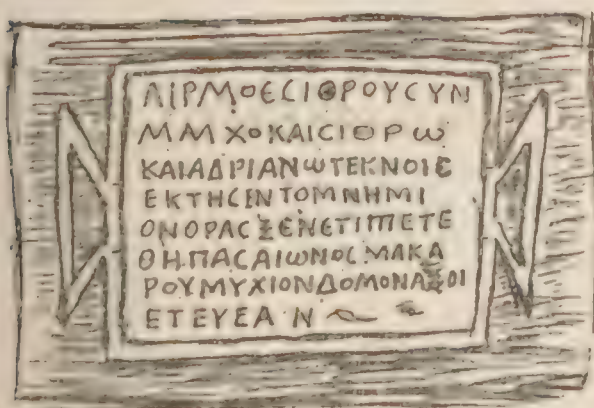 ΛΙΡΜΟΕCΙΘΡΟΥCΥΝ
ΜΑΛΧΟΚΑΙCΙΟΡω
ΚΑΙΑΔΡΙΑΝωΤΕΚΝΟΙC
ΕΚΤΗCΕΝΤΟΜΝΗΜΙ
ΟΝΟΡΑCΞΕΝΕΤΙΠΕΤΕ
ΘΗΠΑCΑΙωΝΟCΜΑΚΑ
ΡΟΥΜΥΧΙΟΝΔΟΜΟΝΑΞΟΙ
ΕΤΕΥΞΑΝ